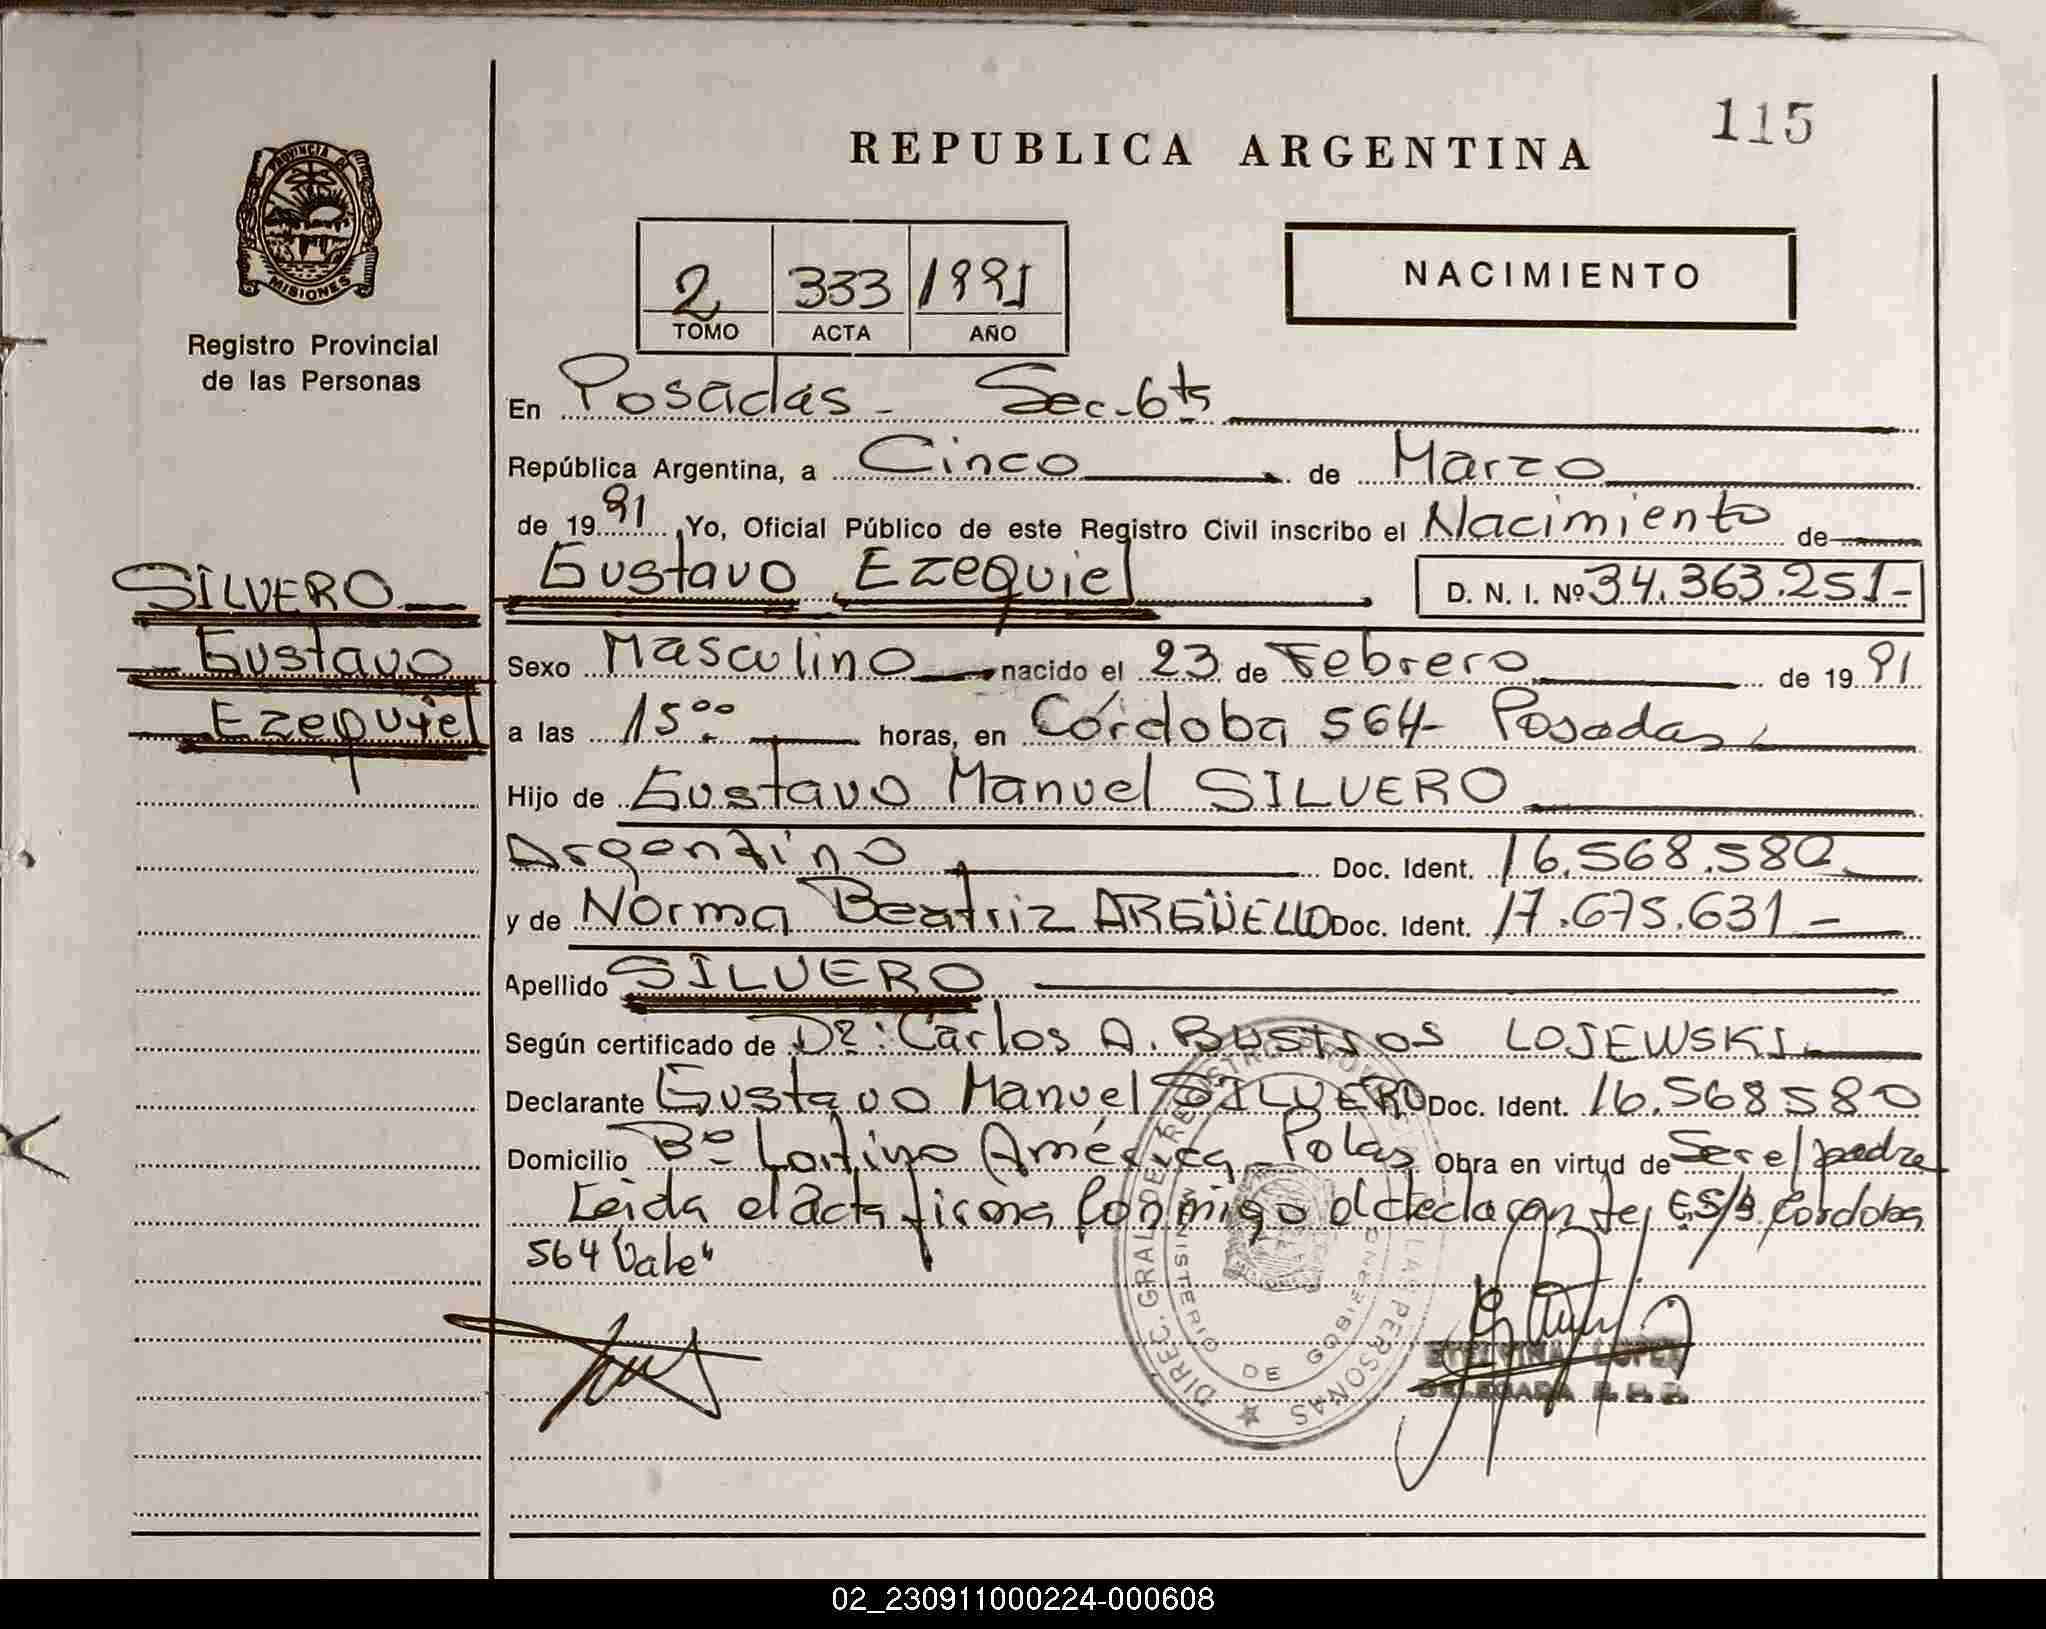 115
REPUBLICA ARGENTINA
PROVINCIA DE MISIONES
Registro Provincial
de las Personas
2 333 1991
TOMO ACTA AÑO
NACIMIENTO
En Posadas - Sec. 6ta
República Argentina, a Cinco de Marzo
de 1991, Yo, Oficial Público de este Registro Civil inscribo el Nacimiento de
SILVERO
Gustavo
Ezequiel
Gustavo Ezequiel D. N. I. Nº 34.363.251-
Sexo Masculino nacido el 23 de Febrero de 1991
a las 15⁰⁰ horas, en Córdoba 564- Posadas
Hijo de Gustavo Manuel SILVERO
Argentino Doc. Ident. 16.568.580
y de Norma Beatriz ARGÜELLO Doc. Ident. 17.675.631-
Apellido SILVERO
Según certificado de Dr: Carlos A. Bustos LOJEWSKI
Declarante Gustavo Manuel SILVERO Doc. Ident. 16.568580
Domicilio Bº Latino América Polas Obra en virtud de Ser el padre
Leida el acta firma Conmigo el declarante, E/S/b Cordoba
564 "Vale"
DIREC. GRAL DE REGISTRO PROV. DE LAS PERSONAS
MINISTERIO DE GOBIERNO
ETELVINA LOPEZ
DELEGADA R. P. P.
02_230911000224-000608